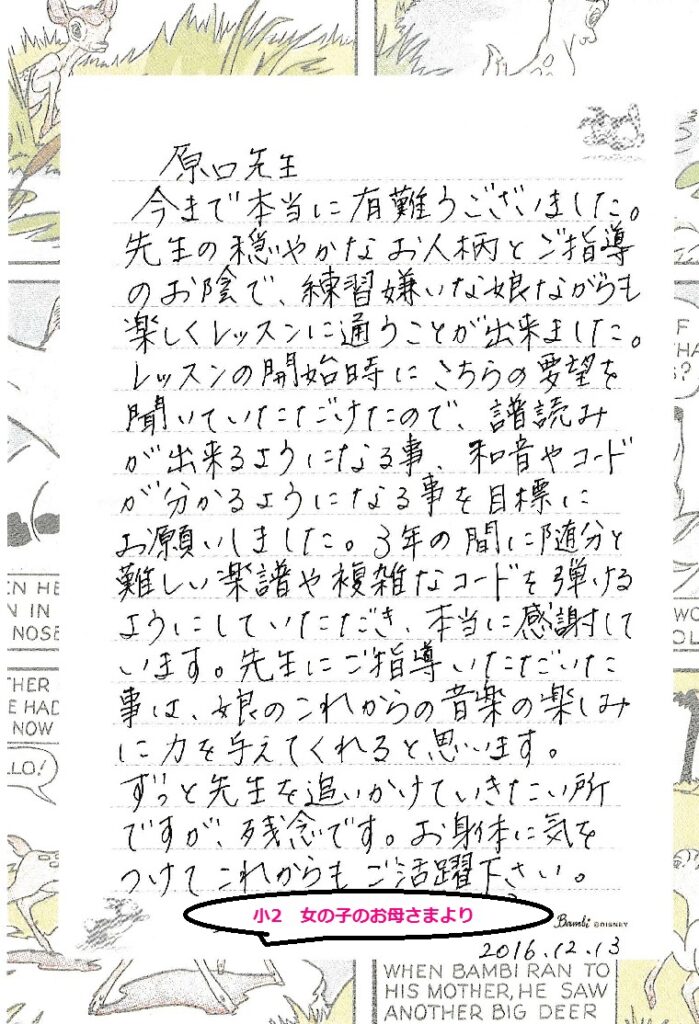 原口先生
今まで本当に有難うございました。
先生の穏やかなお人柄とご指導
のお陰で、練習嫌いな娘ながらも
楽しくレッスンに通うことが出来ました。
レッスンの開始時にこちらの要望を
聞いていただけたので、譜読み
が出来るようになる事、和音やコード
が分かるようになる事を目標に
お願いしました。3年の間に随分と
難しい楽譜や複雑なコードを弾ける
ようにしていただき、本当に感謝して
います。先生にご指導いただいた
事は、娘のこれからの音楽の楽しみ
に力を与えてくれると思います。
ずっと先生を追いかけていきたい所
ですが、残念です。お身体に気を
つけてこれからもご活躍下さい。
小2 女の子のお母さまより
Bambi ©DISNEY
2016.12.13
EN HE
N IN
NOSE
THER
E HAD
NOW
LLO!
WHEN BAMBI RAN TO
HIS MOTHER, HE SAW
ANOTHER BIG DEER